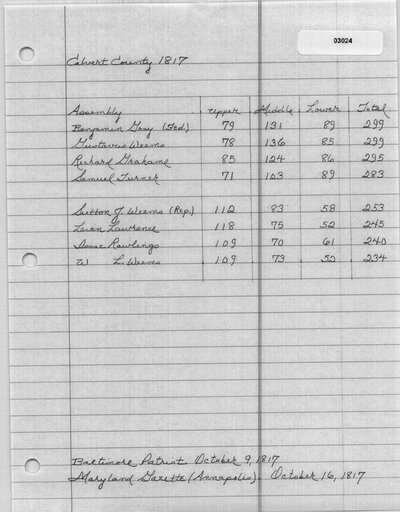 03024
Calvert County 1817
Assembly Upper Middle Lower Total
Benjamin Gray (Fed.) 79 131 89 299
Gustavus Weems 78 136 85 299
Richard Grahame 85 124 86 295
Samuel Turner 71 103 89 283
Sutton J. Weems (Rep) 112 83 58 253
Levin Lawrence 118 75 52 245
Isaac Rawlings 109 70 61 240
W L. Weems 109 73 52 234
Baltimore Patriot October 9, 1817
Maryland Gazette (Annapolis). October 16, 1817